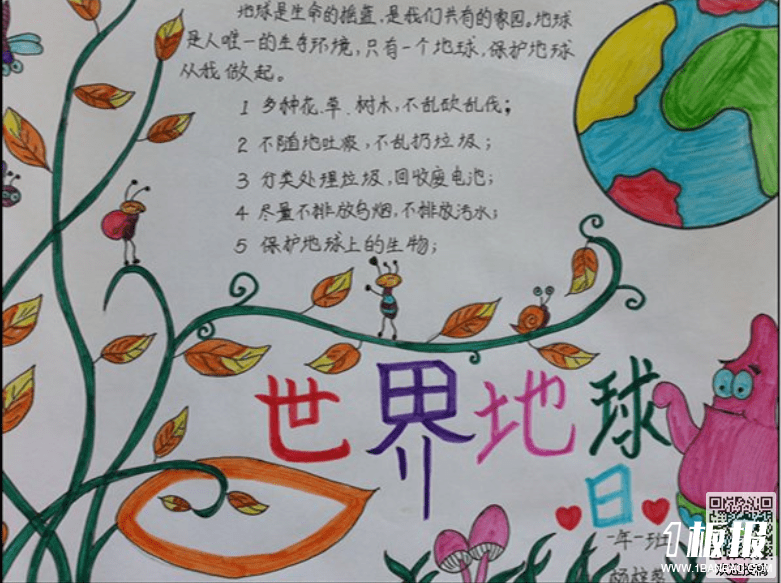 地球是生命的摇篮,是我们共有的家园。地球
是人唯一的生存环境,只有一个地球,保护地球
从我做起。
1 多种花、草、树木,不乱砍乱伐;
2 不随地吐痰,不乱扔垃圾;
3 分类处理垃圾,回收废电池;
4 尽量不排放乌烟,不排放污水;
5 保护地球上的生物;
世界地球
日
一年一班
1板报
WWW.1BANBAO.COM